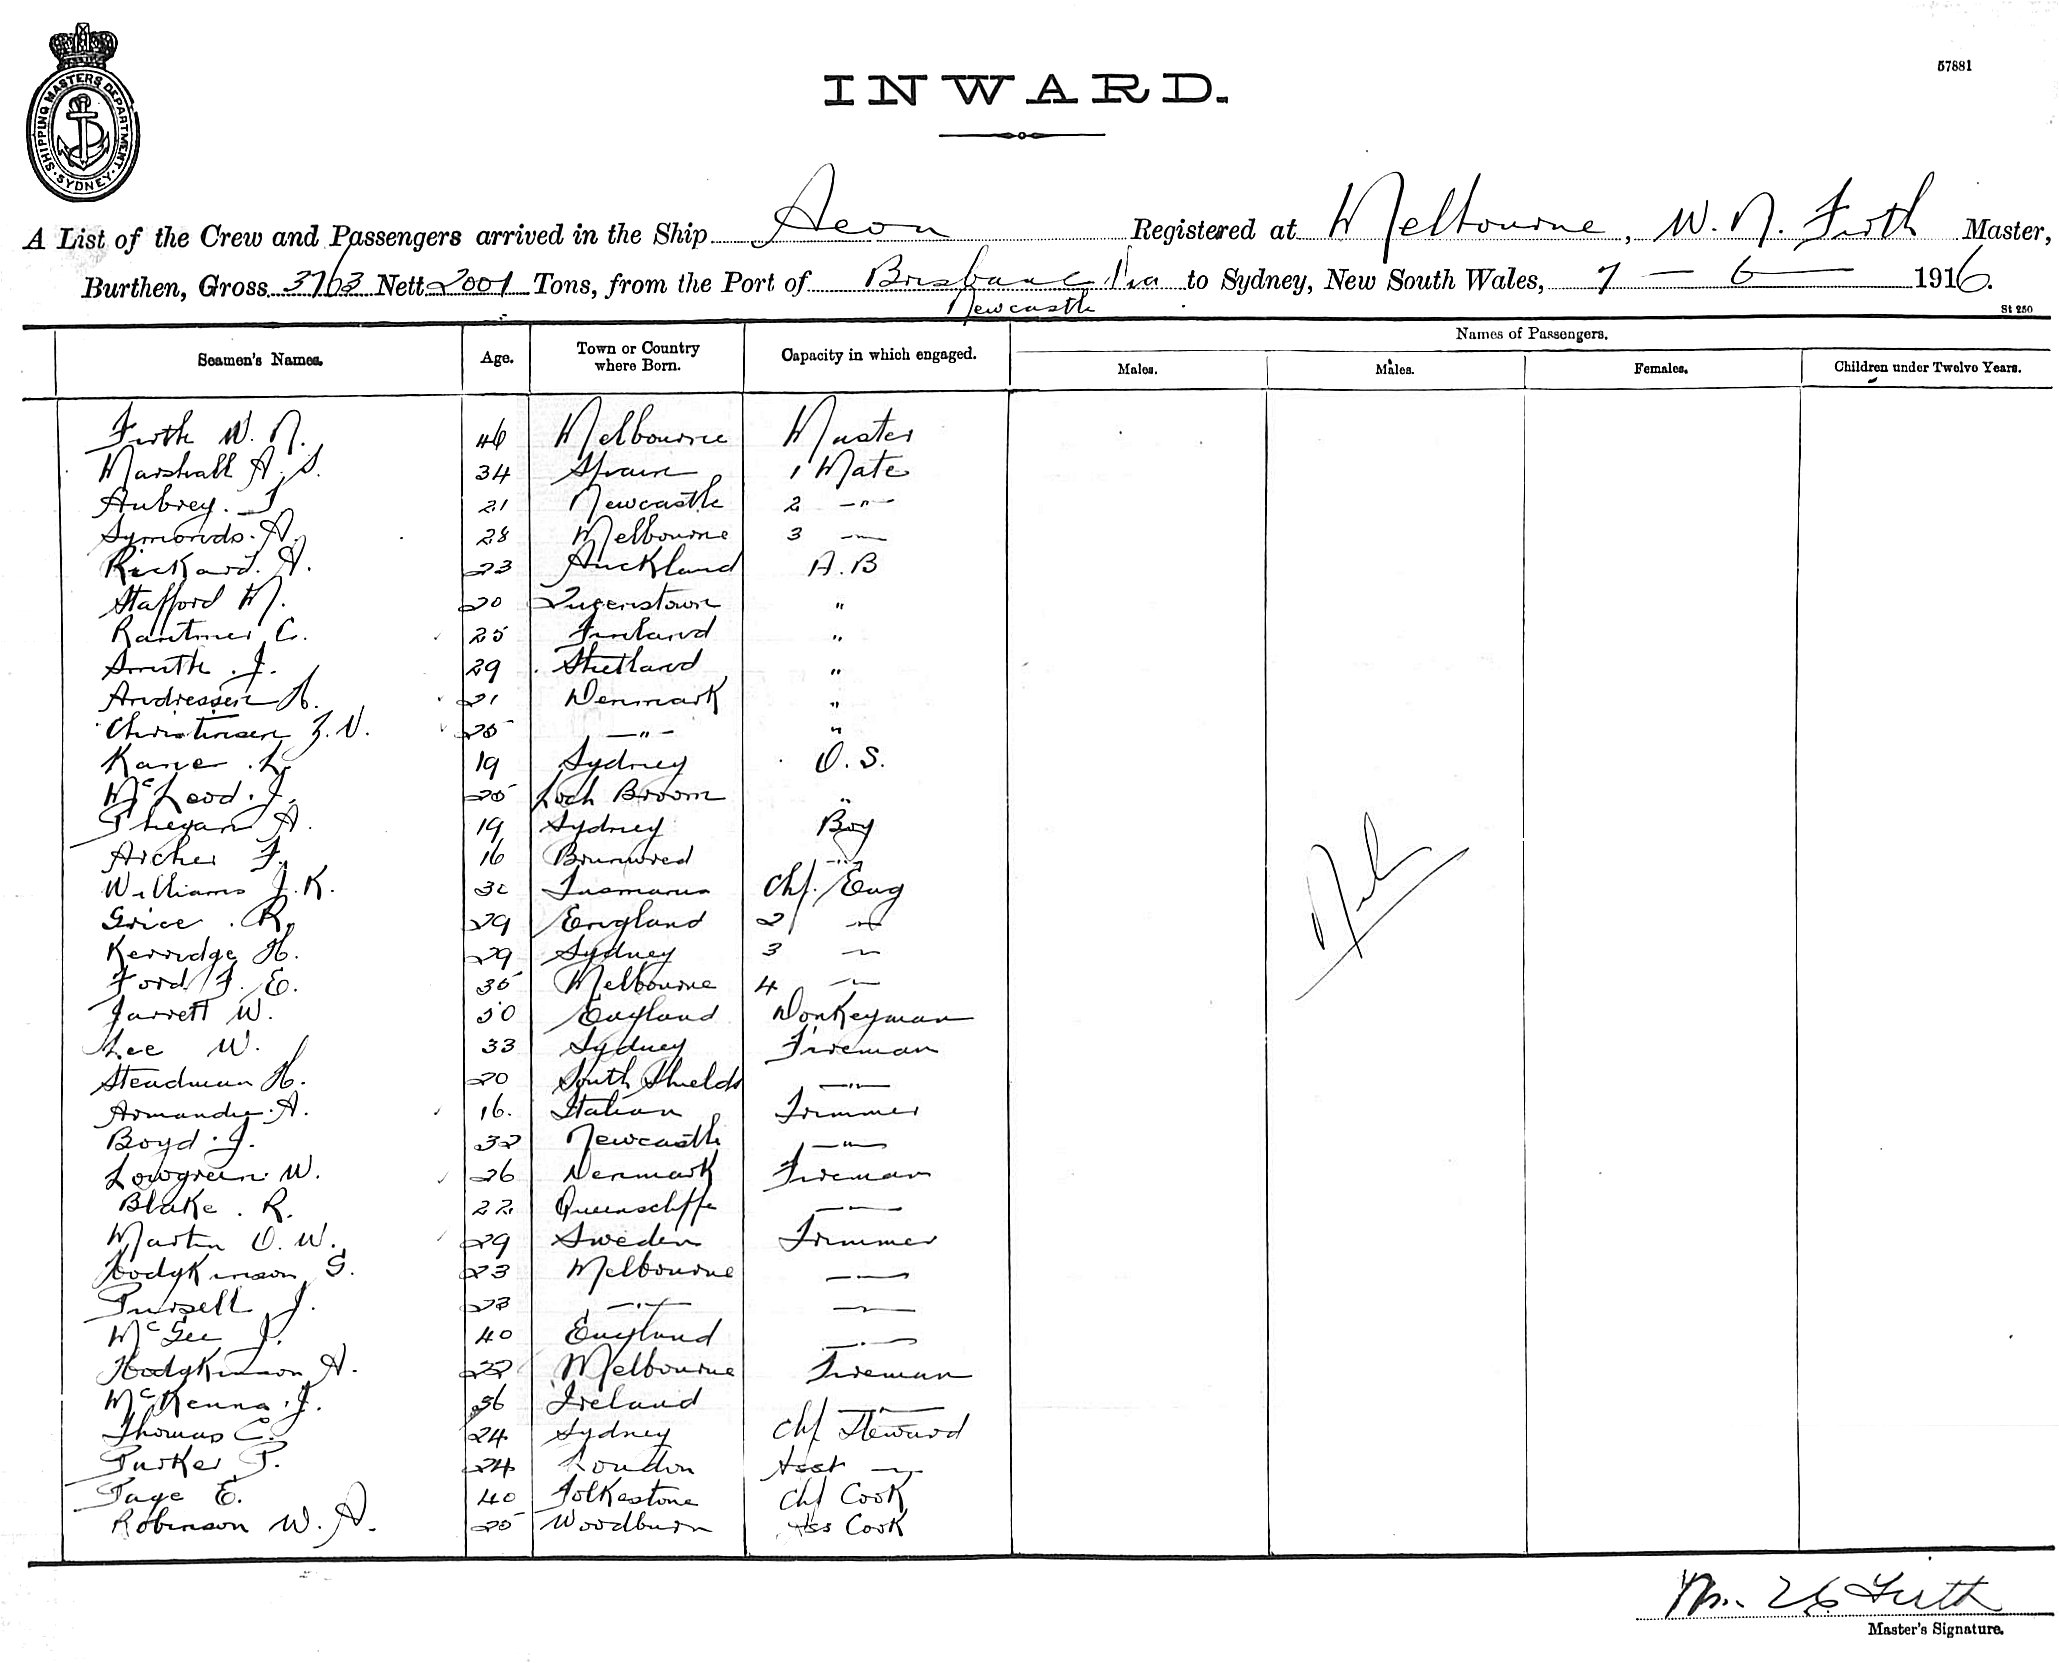 SHIPPING MASTERS DEPARTMENT. SYDNEY.
57881
INWARD.
A List of the Crew and Passengers arrived in the Ship Aeon Registered at Melbourne, W. N. Firth Master,
Burthen, Gross 3763 Nett 2001 Tons, from the Port of Brisbane Via to Sydney, New South Wales, 7 — 6 — 1916.
Newcastle
St 250
Seamen's Names. Age. Town or Country where Born. Capacity in which engaged. Names of Passengers.
Males. Males. Females. Children under Twelve Years.
Firth W. N. 46 Melbourne Master
Marshall A. S. 34 Spain 1 Mate
Aubrey. 21 Newcastle 2 —"—
Symonds. A. 28 Melbourne 3 —
Rickard. A. 23 Auckland A.B
Stafford M. 20 Queenstown "
C. 25 Finland "
Smith. J. 29 Shetland "
Andressen H. 21 Denmark "
Christinsen Z. V. 25 —"— "
Kane. L. 19 Sydney O. S.
McLeod. J. 25 Loch Broom "
A. 19 Sydney Boy
Archer F. 16 "
Williams J. K. Tasmania Chf. Eng
Grice. R. 29 England 2 —
Kerridge H. 29 Sydney 3 —
Ford F. E. 35 Melbourne 4 —
Jarrett W. 50 England Donkeyman
Lee W. 33 Sydney Fireman
Steadman H. 20 South Shields —"—
A. 16. Italian Trimmer
Boyd. J. 32 Newcastle —"—
Lowgreen W. 26 Denmark Fireman
Blake. R. 22 Queenscliffe —
Martin O. W. 29 Sweden Trimmer
Hodgkinson S. 23 Melbourne —
Pursell J. 23 —"— —
McGee J. 40 England —
Hodgkinson A. 22 Melbourne Fireman
McKenna. J. 36 Ireland —
Thomas C. 24 Sydney Chf Steward
P. 24 London Asst —
Page E. 40 Folkestone Chf Cook
Robinson W. A. 25 Woodburn Ass Cook
Nil
Firth
Master's Signature.